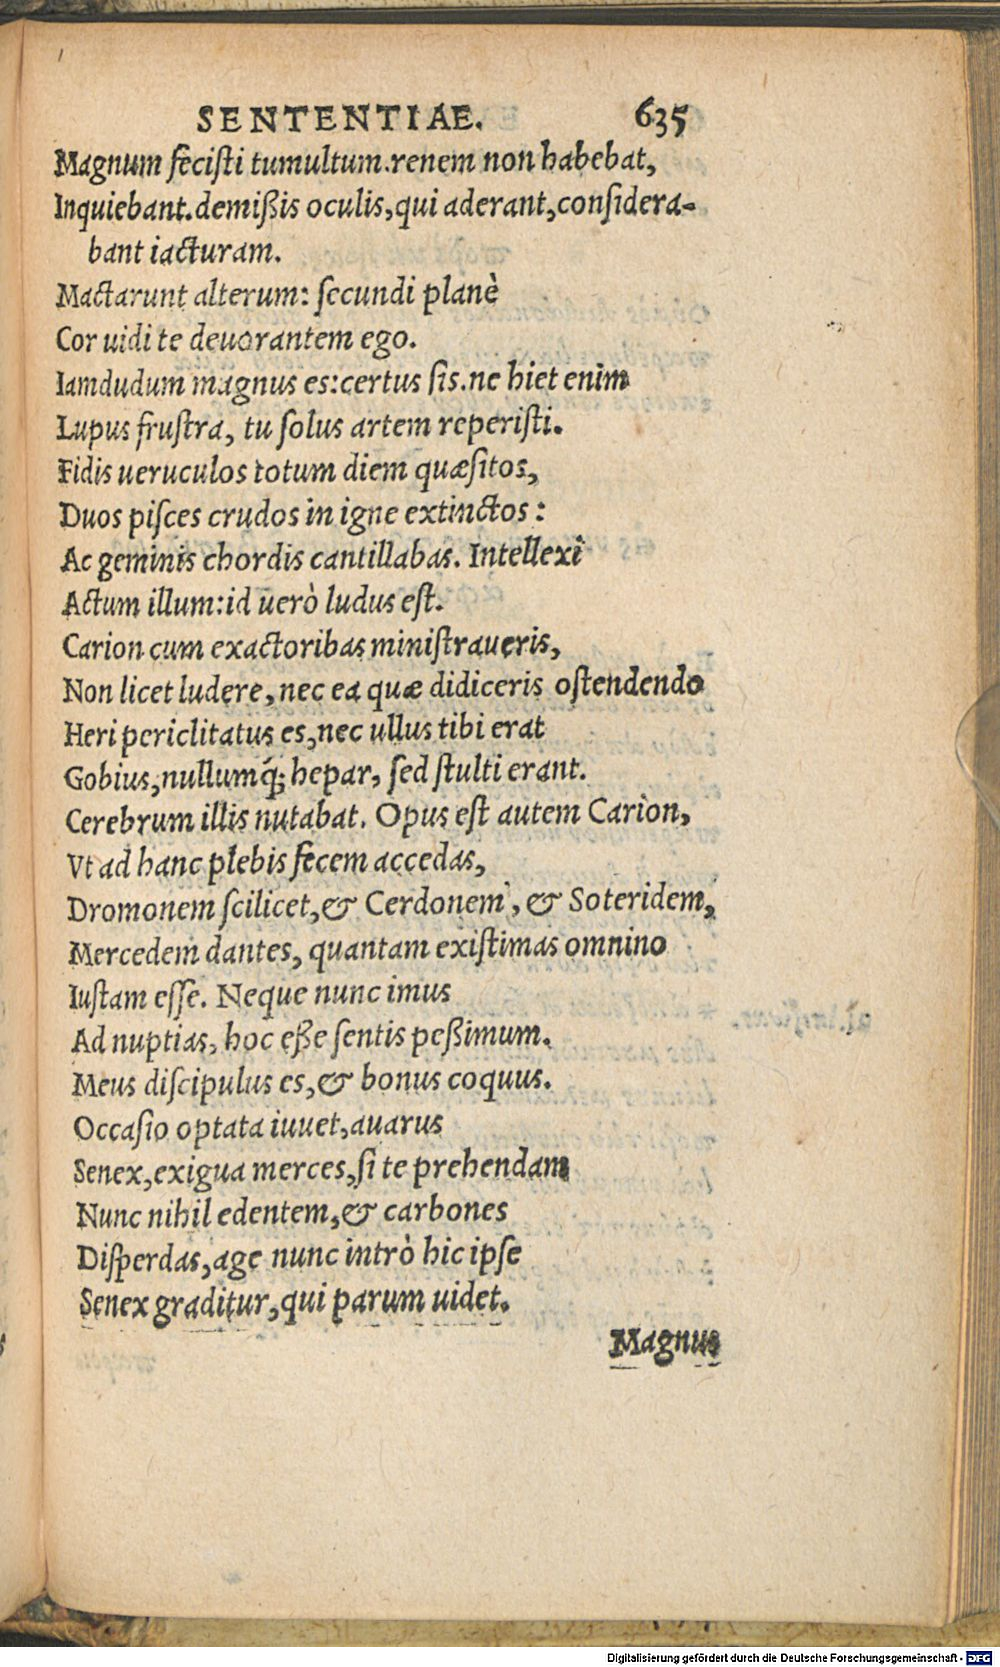 SENTENTIAE. 635
Magnum fecisti tumultum.renem non habebat,
Inquiebant.demißis oculis,qui aderant,considera-
bant iacturam.
Mactarunt alterum: secundi planè
Cor uidi te deuorantem ego.
Iamdudum magnus es:certus sis.ne hiet enim
Lupus frustra, tu solus artem reperisti.
Fidis ueruculos totum diem quæsitos,
Duos pisces crudos in igne extinctos :
Ac geminis chordis cantillabas. Intellexi
Actum illum:id uerò ludus est.
Carion cum exactoribas ministraueris,
Non licet ludere, nec ea quæ didiceris ostendendo
Heri periclitatus es,nec ullus tibi erat
Gobius,nullumq́; hepar, sed stulti erant.
Cerebrum illis nutabat. Opus est autem Carion,
Vt ad hanc plebis fecem accedas,
Dromonem scilicet,& Cerdonem, & Soteridem,
Mercedem dantes, quantam existimas omnino
Iustam esse. Neque nunc imus
Ad nuptias, hoc eße sentis peßimum.
Meus discipulus es,& bonus coquus.
Occasio optata iuuet,auarus
Senex,exigua merces,si te prehendam
Nunc nihil edentem,& carbones
Disperdas,age nunc intrò hic ipse
Senex graditur,qui parum uidet.
Magnus
Digitalisierung gefördert durch die Deutsche Forschungsgemeinschaft - DFG